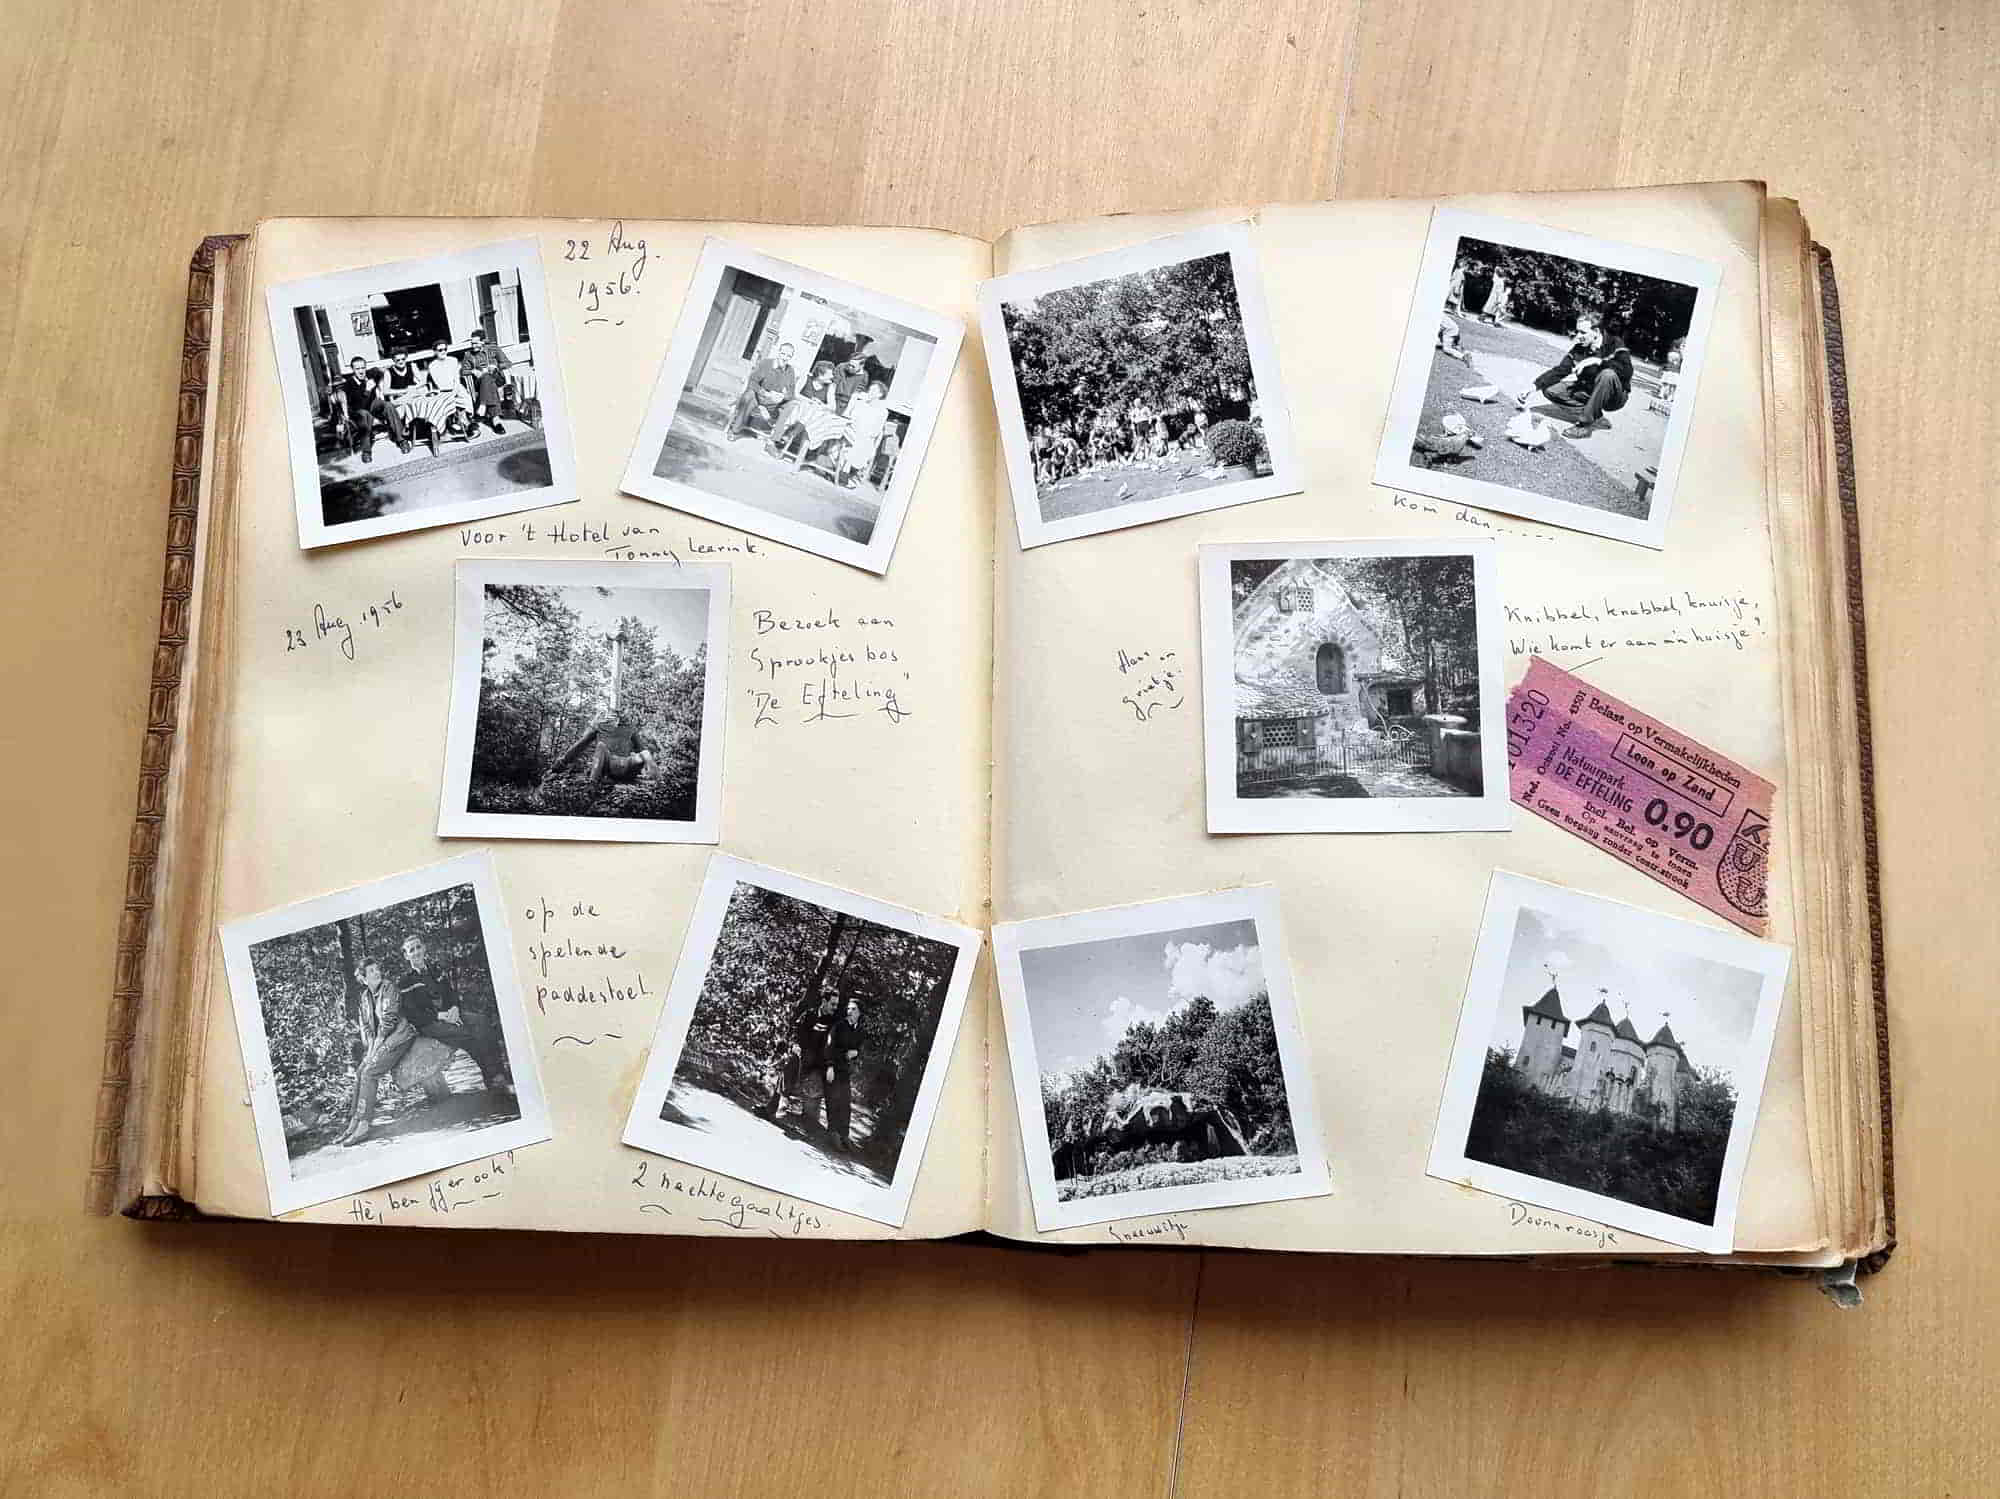 22 Aug.
1956.
Voor 't Hotel van
Tonny Leerink.
23 Aug. 1956
Bezoek aan
Sprookjes bos
"De Efteling"
op de
spelende
paddestoel.
Hè, ben jij er ook?
2 nachtegaaltjes.
Kom dan.....
Hans en
Grietje.
Knibbel, knabbel, knuisje,
Wie komt er aan m'n huisje?
01320
Ned. Octrooi No. 43701
Belast. op Vermakelijkheden
Loon op Zand
Natuurpark
DE EFTELING
0.90
Incl. Bel. op Verm.
Op aanvraag te tonen
Geen toegang zonder contr.strook
Sneeuwitje
Doornroosje